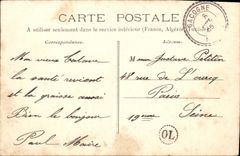 CARTE POSTALE
A utiliser seulement dans le service intérieur (France, Algérie
Correspondance.
Adresse.
Mon vieux
la santé revient
et la graisse aussi
Bien le bonjour
Paul Maire
GACOGNE
Gustave Petitin
48 rue de L'ourcq
Paris
19me
Seine
OL